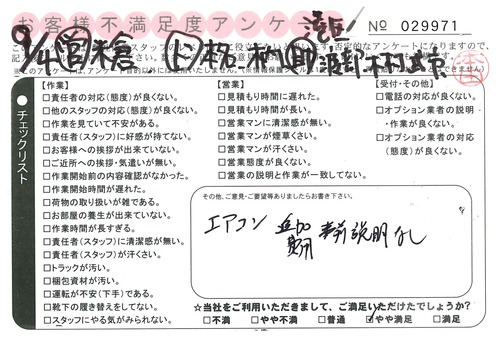 お客様不満足度アンケート
№ 029971
チェックリスト
【作業】
□責任者の対応(態度)が良くない。
□他のスタッフの対応(態度)が良くない。
□作業を見ていて不安がある。
□責任者(スタッフ)に好感が持てない。
□お客様への挨拶が出来ていない。
□ご近所への挨拶・気遣いが無い。
□作業開始前の内容確認がなかった。
□作業開始時間が遅れた。
□荷物の取り扱いが雑である。
□お部屋の養生が出来ていない。
□作業時間が長すぎる。
□責任者(スタッフ)に清潔感が無い。
□責任者(スタッフ)が汗くさい。
□トラックが汚い。
□梱包資材が汚い。
□運転が不安(下手)である。
□靴下の履き替えをしてない。
□スタッフにやる気がみられない。
【営業】
□見積もり時間に遅れた。
□見積もり時間が長い。
□営業マンに清潔感が無い。
□営業マンが煙草くさい。
□営業マンが汗くさい。
□営業態度が良くない。
□営業の説明と作業が一致してない。
【受付・その他】
□電話の対応が良くない。
□オプション業者の説明・作業が良くない。
□オプション業者の対応(態度)が良くない。
その他、ご意見・ご要望等ありましたらお書き下さい。
エアコン 追加費用 事前説明なし
☆当社をご利用いただきまして、ご満足いただけたでしょうか?
□不満 □やや不満 □普通 ☑やや満足 □満足